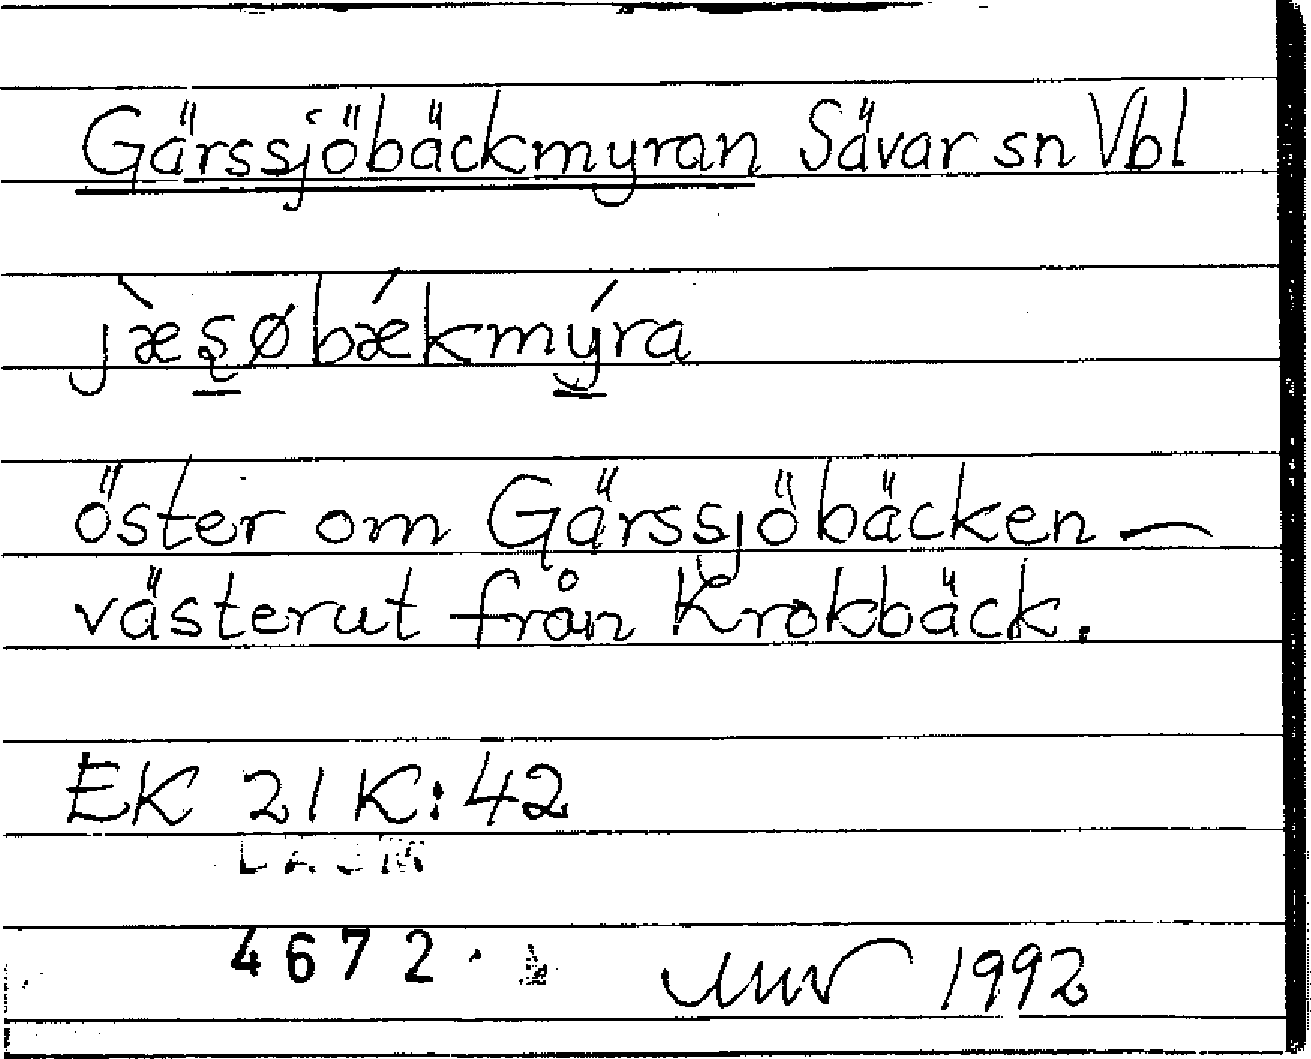 Gärssjöbäckmyran Sävar sn Vbl
jæ̀ʂøbǽkmýra
öster om Gärssjöbäcken —
västerut från Krokbäck.
EK 21 K:42
4672
1992